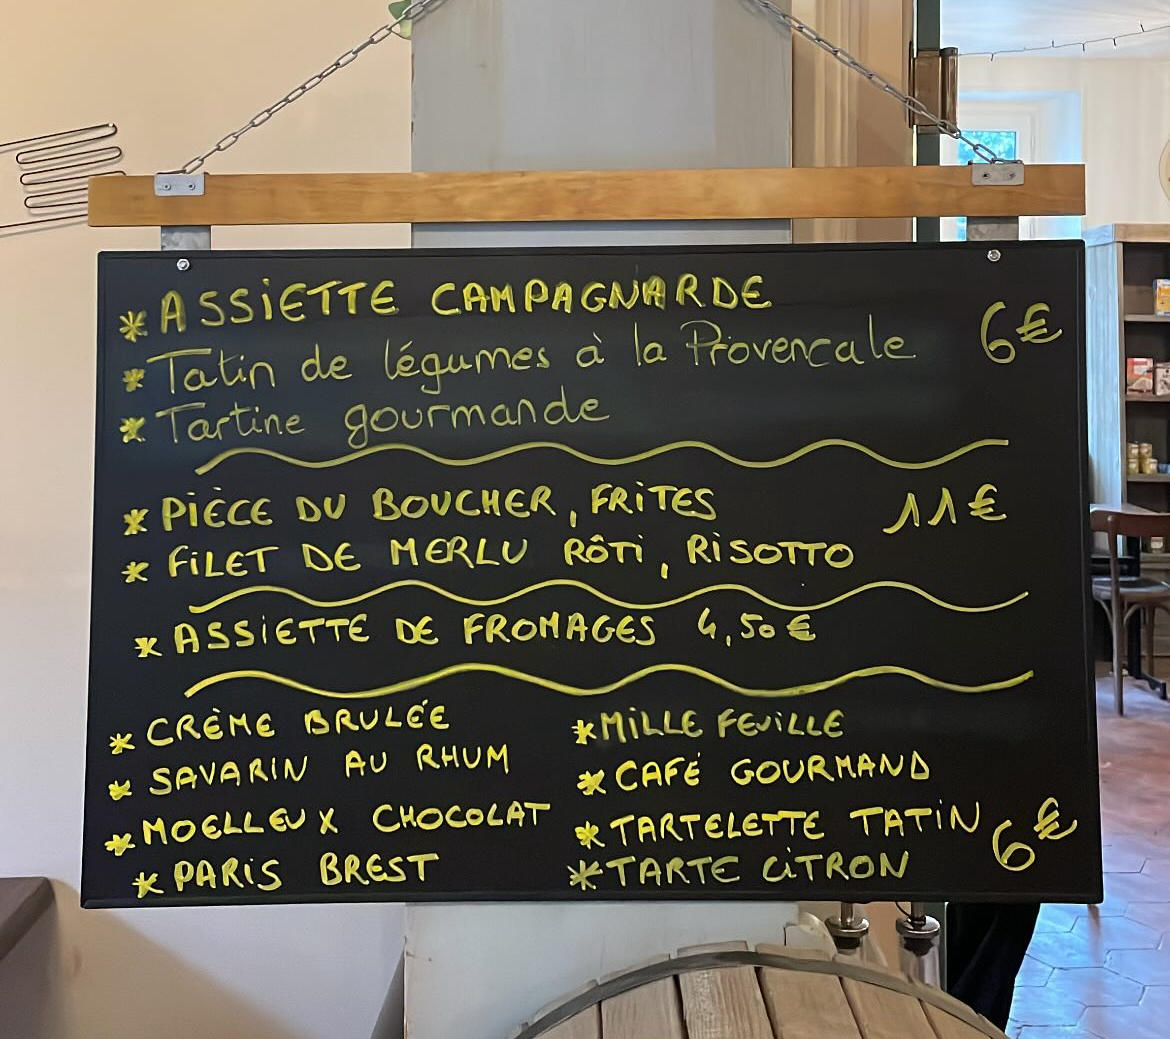 * ASSIETTE CAMPAGNARDE
* Tatin de légumes à la Provencale 6€
* Tartine gourmande
* PIÈCE DU BOUCHER, FRITES 11€
* FILET DE MERLU RÔTI, RISOTTO
* ASSIETTE DE FROMAGES 4,50€
* CRÈME BRULÉE
* SAVARIN AU RHUM
* MOELLEUX CHOCOLAT
* PARIS BREST
* MILLE FEUILLE
* CAFÉ GOURMAND
* TARTELETTE TATIN 6€
* TARTE CITRON